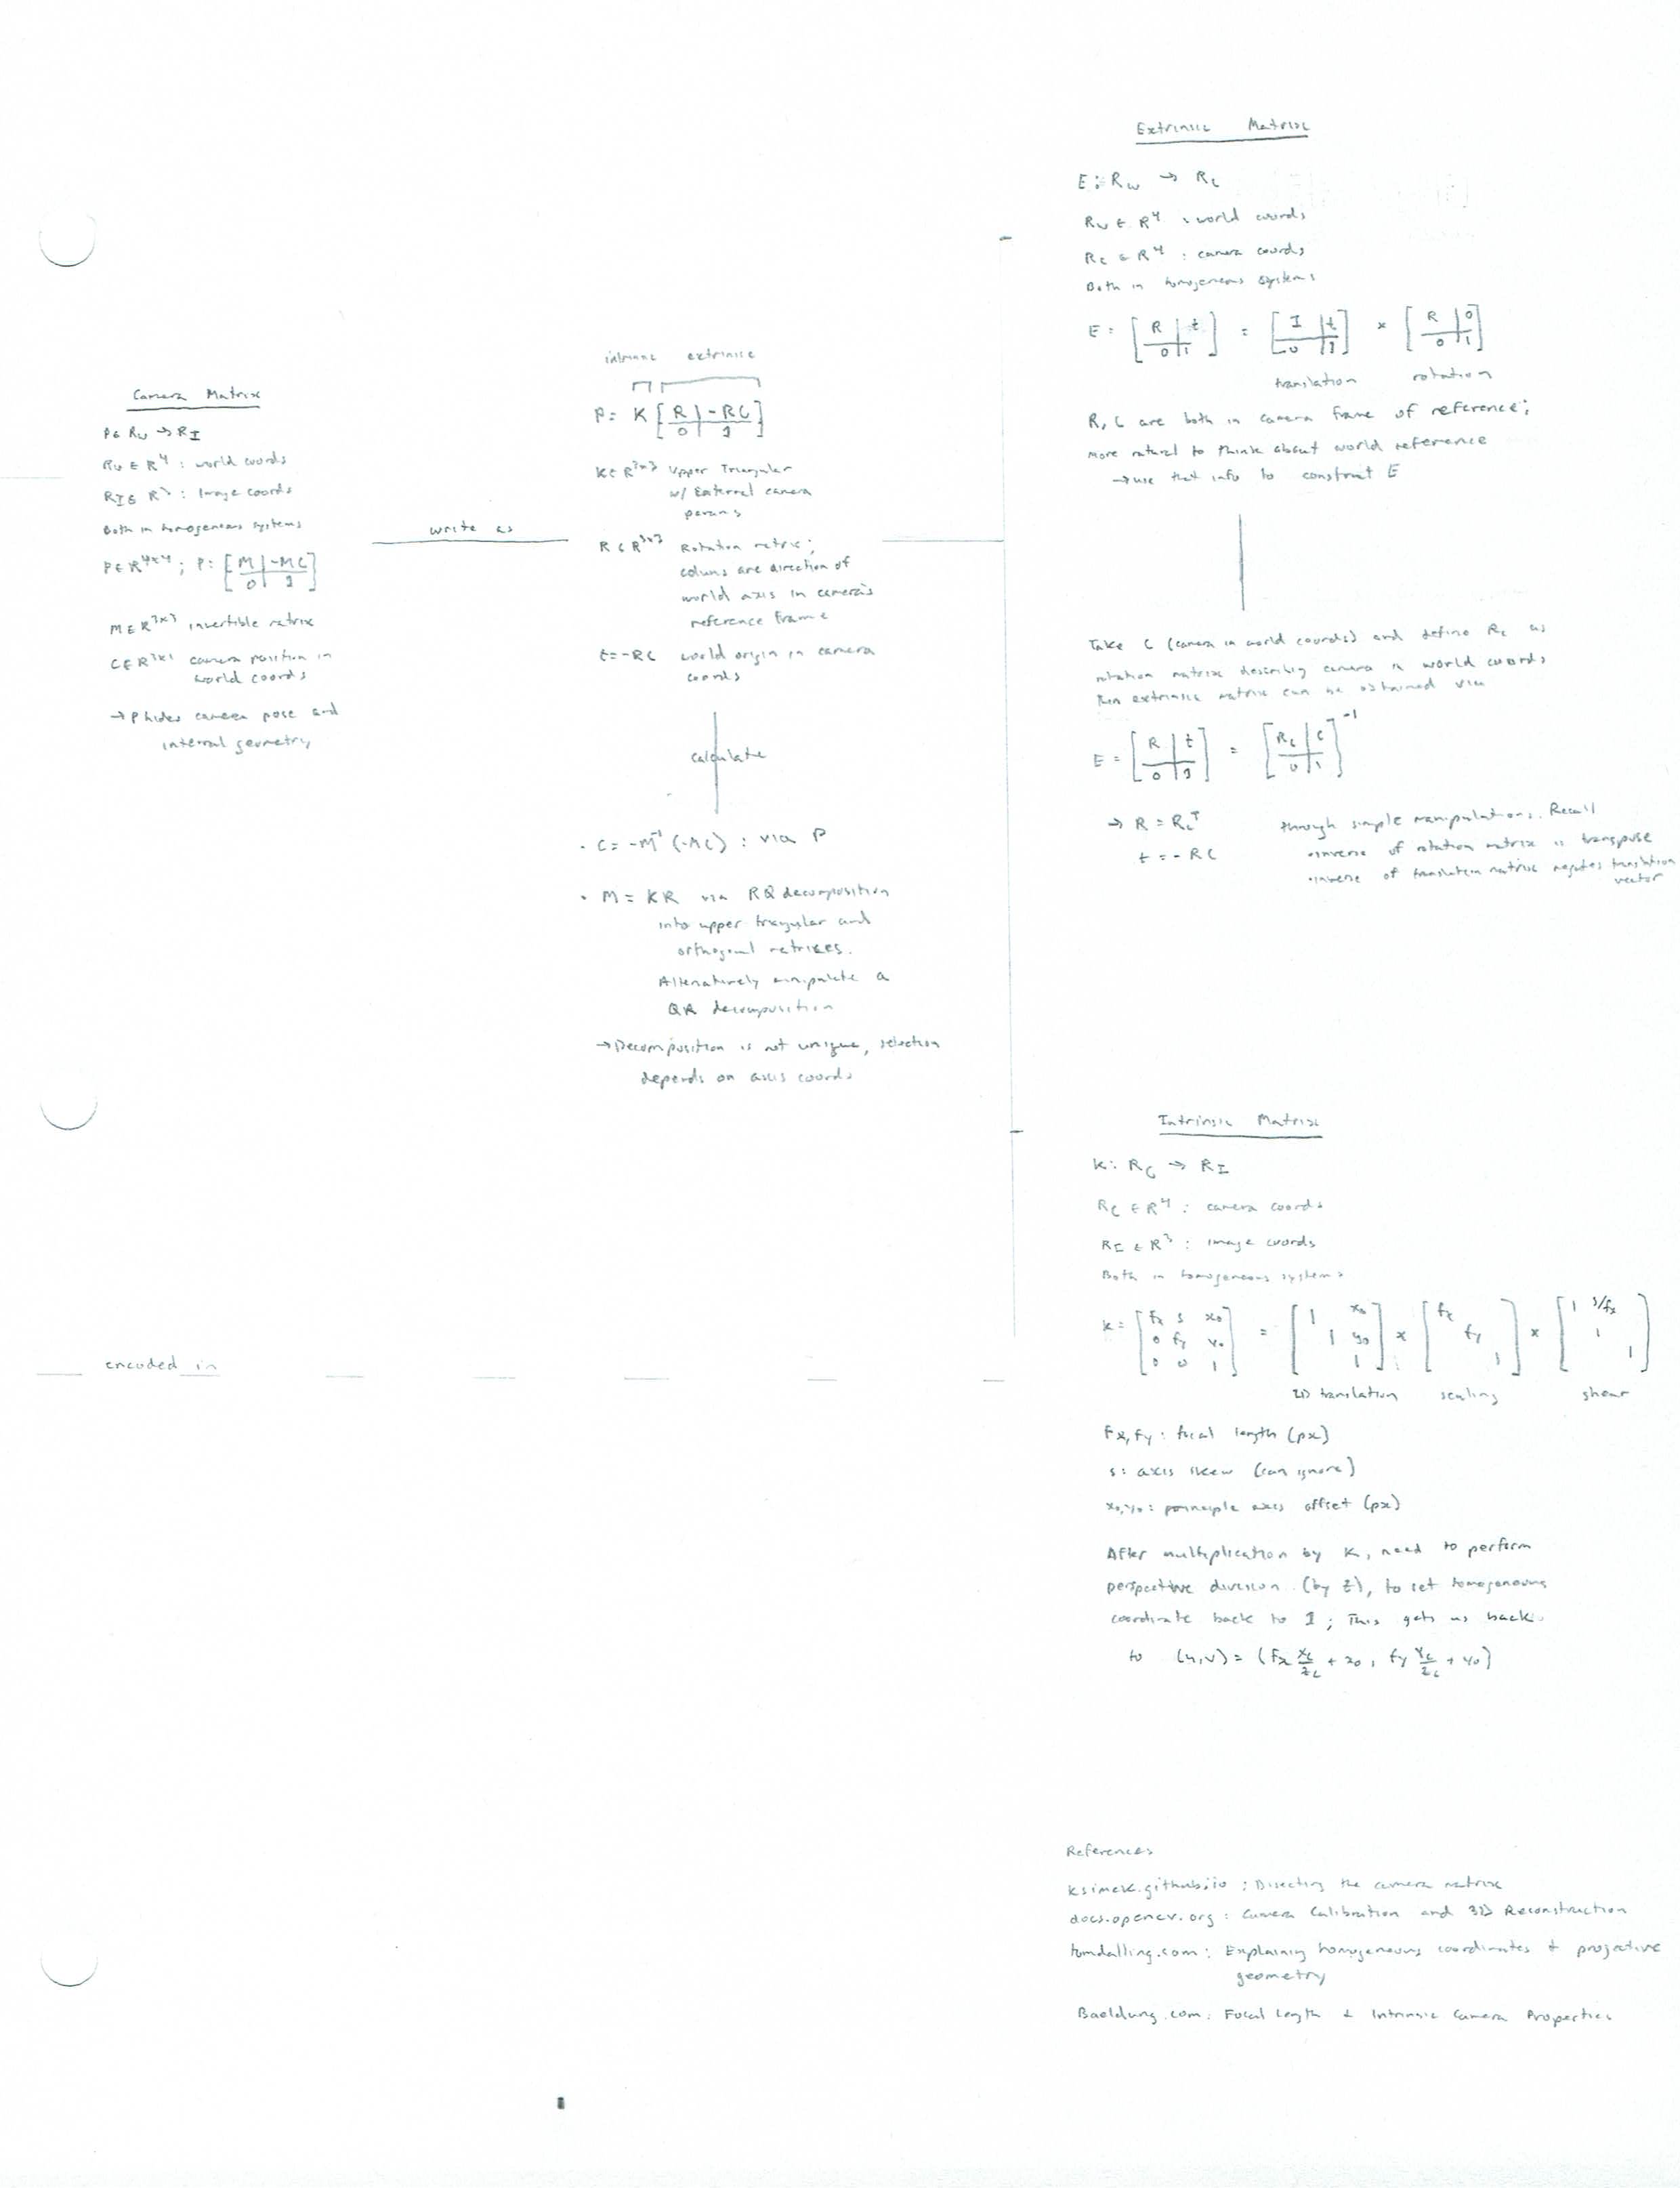 Camera Matrix
P: R_W → R_I
R_W ∈ R^4 : world coords
R_I ∈ R^3 : Image coords
Both in homogeneous systems
P ∈ R^{4x4} ; P: [M | -MC / 0 | 1]
M ∈ R^{3x3} invertible matrix
C ∈ R^{3x1} camera position in
world coords
→ P hides camera pose and
internal geometry
encoded in
write as
intrinsic extrinsic
P = K [R | -RC / 0 | 1]
K ∈ R^{3x3} Upper Triangular
w/ External camera
params
R ∈ R^{3x3} Rotation matrix;
colums are direction of
world axis in camera's
reference frame
t = -RC world origin in camera
coords
calculate
• C = -M^{-1} (-MC) : via P
• M = KR via RQ decomposition
into upper triangular and
orthogonal matrices.
Alternatively manipulate a
QR decomposition
→ Decomposition is not unique, selection
depends on axis coords
Extrinsic Matrix
E: R_W → R_C
R_W ∈ R^4 : world coords
R_C ∈ R^4 : camera coords
Both in homogeneous systems
E = [R | t / 0 | 1] = [I | t / 0 | 1] x [R | 0 / 0 | 1]
translation rotation
R, C are both in camera frame of reference;
more natural to think about world reference
→ use that info to construct E
Take C (camera in world coords) and define R_C as
rotation matrix describing camera in world coords
then extrinsic matrix can be obtained via
E = [R | t / 0 | 1] = [R_C | C / 0 | 1]^{-1}
→ R = R_C^T through simple manipulations. Recall
t = -RC • inverse of rotation matrix is transpose
• inverse of translation matrix negates translation
vector
Intrinsic Matrix
K: R_C → R_I
R_C ∈ R^4 : camera coords
R_I ∈ R^3 : image coords
Both in homogeneous systems
K = [fx s x0 / 0 fy y0 / 0 0 1] = [1 x0 / 1 y0 / 1] x [fx / fy / 1] x [1 s/fx / 1 / 1]
2D translation scaling shear
fx, fy : focal length (px)
s : axis skew (can ignore)
x0, y0 : principle axis offset (px)
After multiplication by K, need to perform
perspective division (by z), to set homogeneous
coordinate back to 1 ; This gets us back
to (u,v) = (fx x_c/z_c + x0, fy y_c/z_c + y0)
References
ksimek.github.io : Disecting the camera matrix
docs.opencv.org : Camera Calibration and 3D Reconstruction
tomdalling.com : Explaining homogeneous coordinates & projective
geometry
Baeldung.com : Focal Length & Intrinsic Camera Properties